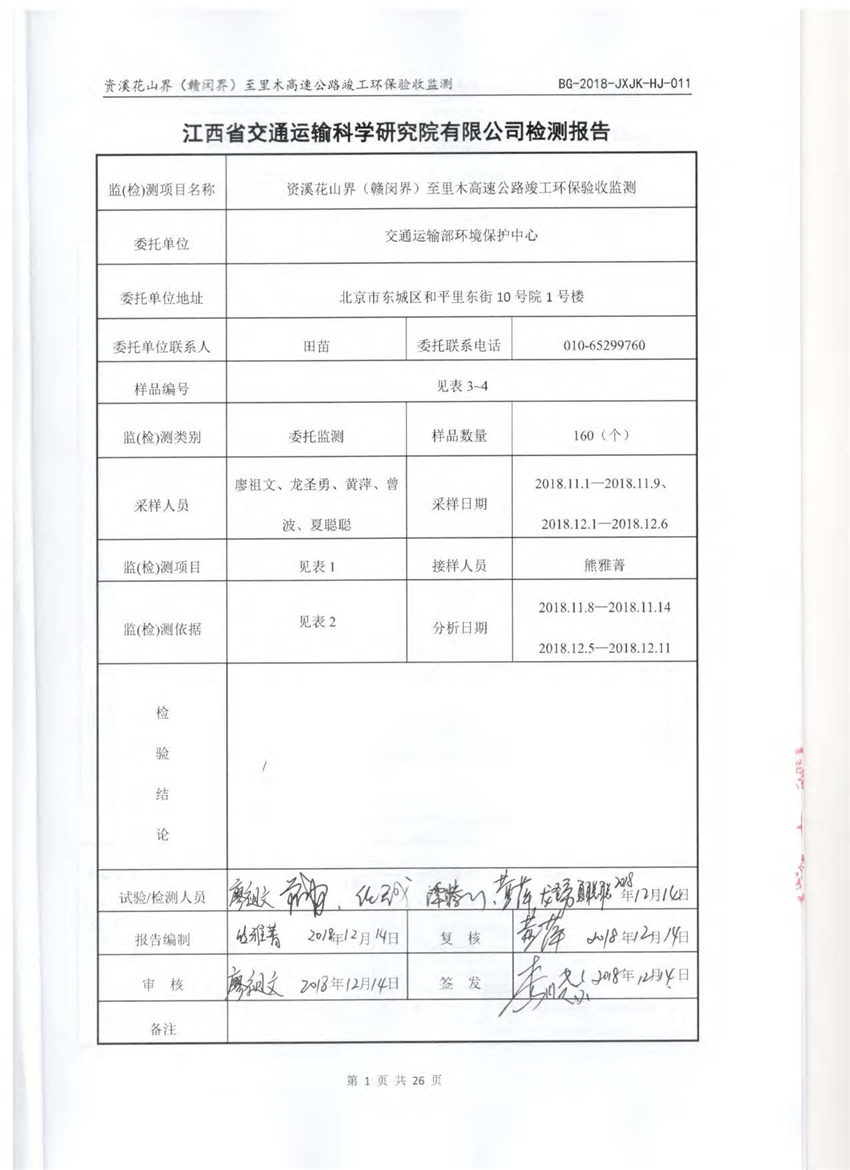 资溪花山界（赣闽界）至里木高速公路竣工环保验收监测 BG-2018-JXJK-HJ-011
江西省交通运输科学研究院有限公司检测报告
监(检)测项目名称 资溪花山界（赣闽界）至里木高速公路竣工环保验收监测
委托单位 交通运输部环境保护中心
委托单位地址 北京市东城区和平里东街 10 号院 1 号楼
委托单位联系人 田苗 委托联系电话 010-65299760
样品编号 见表 3~4
监(检)测类别 委托监测 样品数量 160（个）
采样人员 廖祖文、龙圣勇、黄萍、曾
波、夏聪聪
采样日期 2018.11.1—2018.11.9、
2018.12.1—2018.12.6
监(检)测项目 见表 1 接样人员 熊雅菁
监(检)测依据 见表 2 分析日期 2018.11.8—2018.11.14
2018.12.5—2018.12.11
检
验
结
论
/
试验/检测人员 廖祖文 黄萍 2018年12月14日
报告编制 2018年12月14日 复 核 黄萍 2018年12月14日
审 核 廖祖文 2018年12月14日 签 发 2018年12月14日
备注
第 1 页 共 26 页